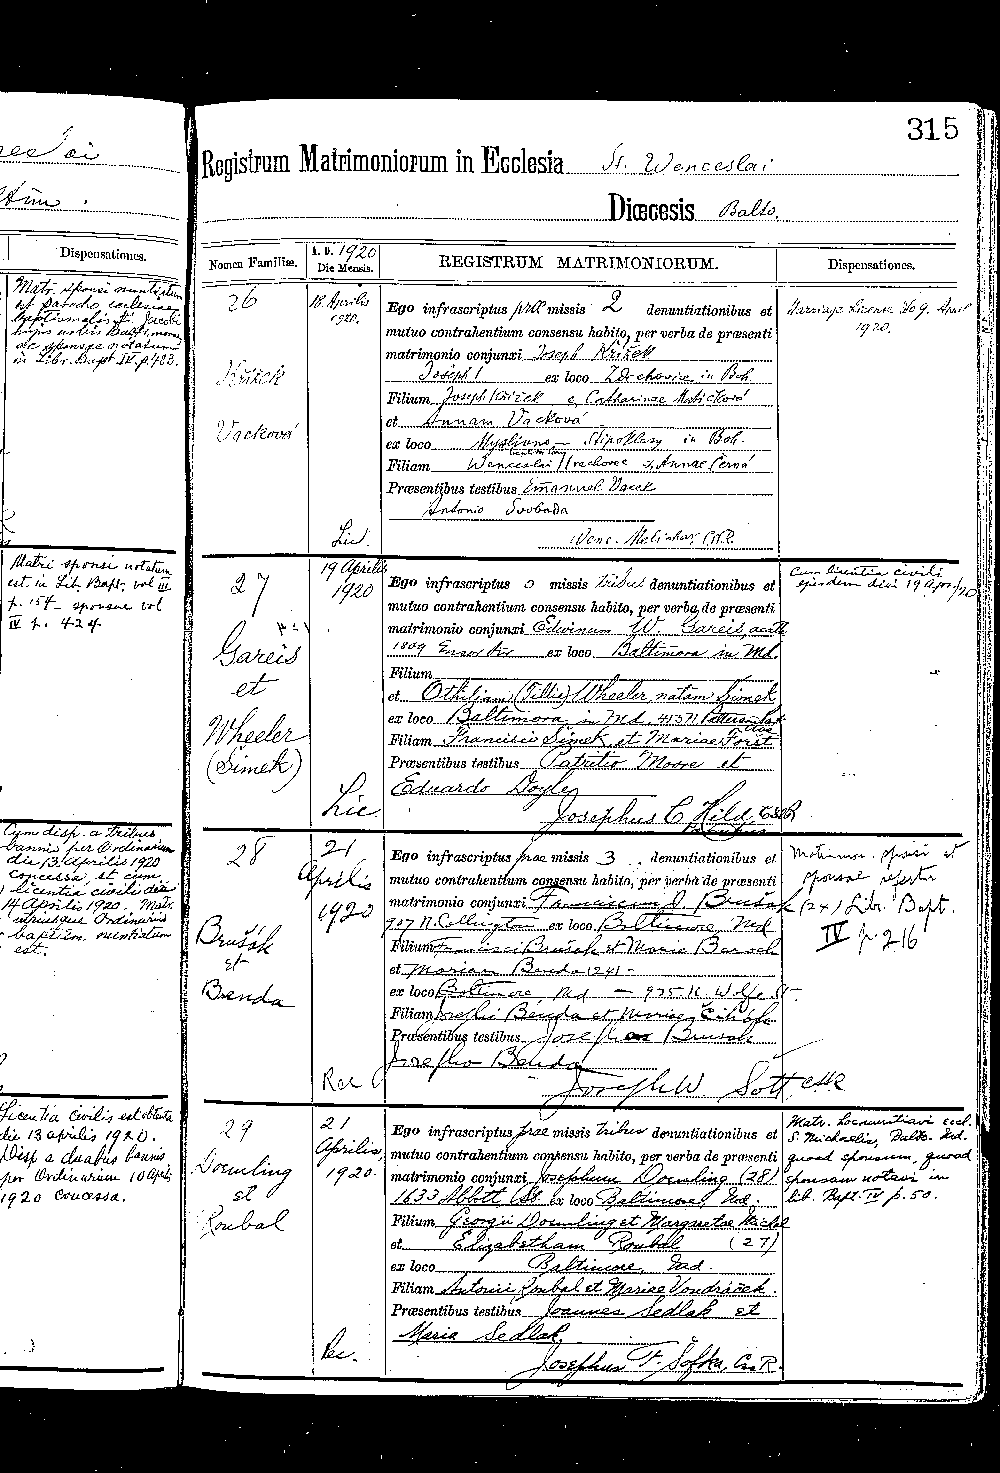 315
Registrum Matrimoniorum in Ecclesia St. Wenceslai
Diœcesis Balto.
Dispensationes.
Matr. sponsi nuntiatum
in Libr. Bapt. IV. p. 483.
Matri sponsi notatum
est in Lib. Bapt. vol III
p. 154 - sponsae vol
IV p. 424
Cum disp. a tribus
bannis per Ordinarium
die 13 Aprilis 1920
concessa et cum
licentia civili die
14 Aprilis 1920. Matr.
utriusque Ordinariis
baptism. nuntiatum
est.
Licentia civilis est obtenta
die 13 aprilis 1920.
Disp a duabus bannis
per Ordinarium 10 April
1920 concessa.
Nomen Familiæ.
A. D. 1920
Die Mensis.
REGISTRUM MATRIMONIORUM.
Dispensationes.
26
Křížek
Vacková
18. Aprilis
1920.
Lic.
Ego infrascriptus præ missis 2 denuntiationibus et
mutuo contrahentium consensu habito, per verba de præsenti
matrimonio conjunxi Joseph Křížek
Joseph ex loco Zdechovice in Boh.
Filium Joseph Křížek & Catharinae
et Annam Vacková
ex loco in Boh.
Filiam Wenceslai & Annae Černá
Præsentibus testibus Emanuel Vacek
Antonio Svoboda
Marriage License No 9. April
1920.
27
Gareis
et
Wheeler
(Šimek)
19 Aprilis
1920
Lic.
Ego infrascriptus o missis tribus denuntiationibus et
mutuo contrahentium consensu habito, per verba de præsenti
matrimonio conjunxi Edwinum W Gareis, acath
1809 Ensor Str ex loco Baltimora in Md.
Filium
et Othiliam (Tillie) Wheeler, natam Šimek
ex loco Baltimora in Md,
Filiam Francisci Šimek et Mariae Forst
Præsentibus testibus Patritio Moore et
Eduardo Doyle
Josephus C Hild, CSSR
Cum licentia civili
ejusdem diei 19 Apr./20
28
Brušák
et
Benda
21
Aprilis
1920
Rel
Ego infrascriptus prae missis 3 denuntiationibus et
mutuo contrahentium consensu habito, per verba de præsenti
matrimonio conjunxi Franciscum J. Brušák (24)
907 N. Collington ex loco Baltimore, Md
Filium Francisci Brušak et Maria
et Mariam Benda (24) -
ex loco Baltimore, Md - 935 N. Wolfe St.
Filiam Josephi Benda et Mariae
Præsentibus testibus Joseph Brusak
Josepho Benda
Joseph W Sott CSSR
Matrimon. sponsi et
sponsae refertur
Libr. Bapt.
IV p. 216
29
Doemling
et
Roubal
21
Aprilis,
1920
Rel.
Ego infrascriptus prae missis tribus denuntiationibus et
mutuo contrahentium consensu habito, per verba de præsenti
matrimonio conjunxi Josephum Doemling (28)
1633 Abbott St. ex loco Baltimore, Md.
Filium Georgii Doemling et Margaretae Michel
et Elizabetham Roubal (27)
ex loco Baltimore, Md.
Filiam Antonii Roubal et Mariae Vondráček.
Præsentibus testibus Joannes Sedlak et
Maria Sedlak,
Josephus F. Sofka, CssR.
Matr. denuntiavi eccl.
S. Michaelis, Balto. Md.
quoad sponsum, quoad
sponsam notavi in
lib. Bapt. IV p. 50.